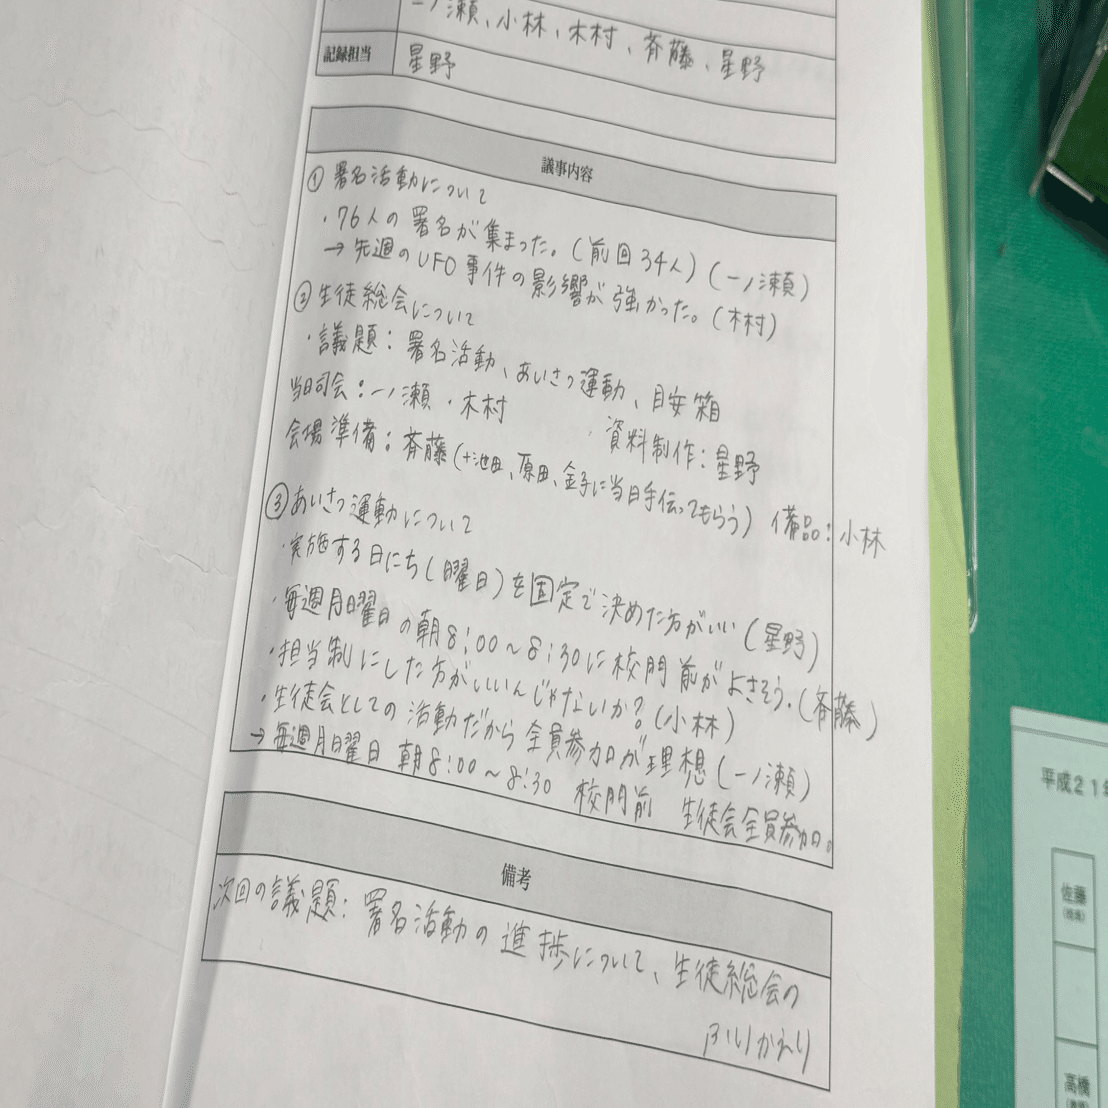 一ノ瀬、小林、木村、斉藤、星野
記録担当 星野
議事内容
① 署名活動について
・76人の署名が集まった。(前回34人)(一ノ瀬)
→先週のUFO事件の影響が強かった。(木村)
② 生徒総会について
・議題：署名活動、あいさつ運動、目安箱
当日司会：一ノ瀬・木村 資料制作：星野
会場準備：斉藤(+池田、原田、金子に当日手伝ってもらう) 備品：小林
③ あいさつ運動について
・実施する日にち(曜日)を固定で決めた方がいい(星野)
・毎週月曜日の朝8:00～8:30に校門前がよさそう。(斉藤)
・担当制にした方がいいんじゃないか？(小林)
・生徒会としての活動だから全員参加が理想(一ノ瀬)
→毎週月曜日 朝8:00～8:30 校門前 生徒会全員参加。
備考
次回の議題：署名活動の進捗について、生徒総会の
ふりかえり
平成21年
佐藤
高橋